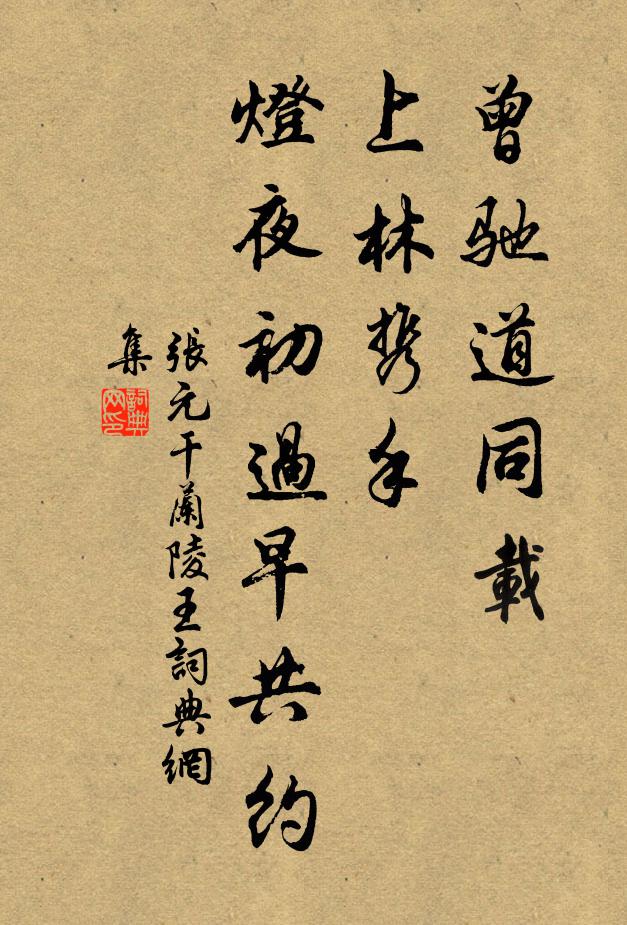 曾馳道同載
上林携手
燈夜初過早共約
張元干蘭陵王詞典網
集
詞典
网印